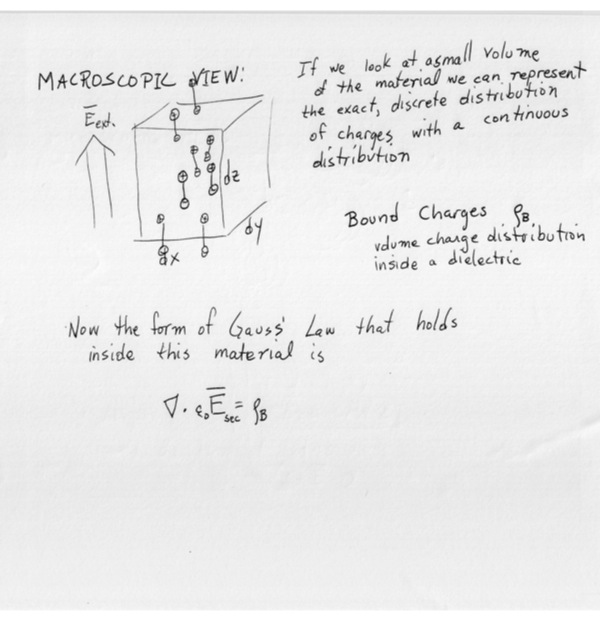 MACROSCOPIC VIEW:
Eext.
dz
dy
dx
If we look at a small volume
of the material we can represent
the exact, discrete distribution
of charges with a continuous
distribution
Bound Charges ρB,
volume charge distribution
inside a dielectric
Now the form of Gauss' Law that holds
inside this material is
∇ · ε₀E̅sec = ρB